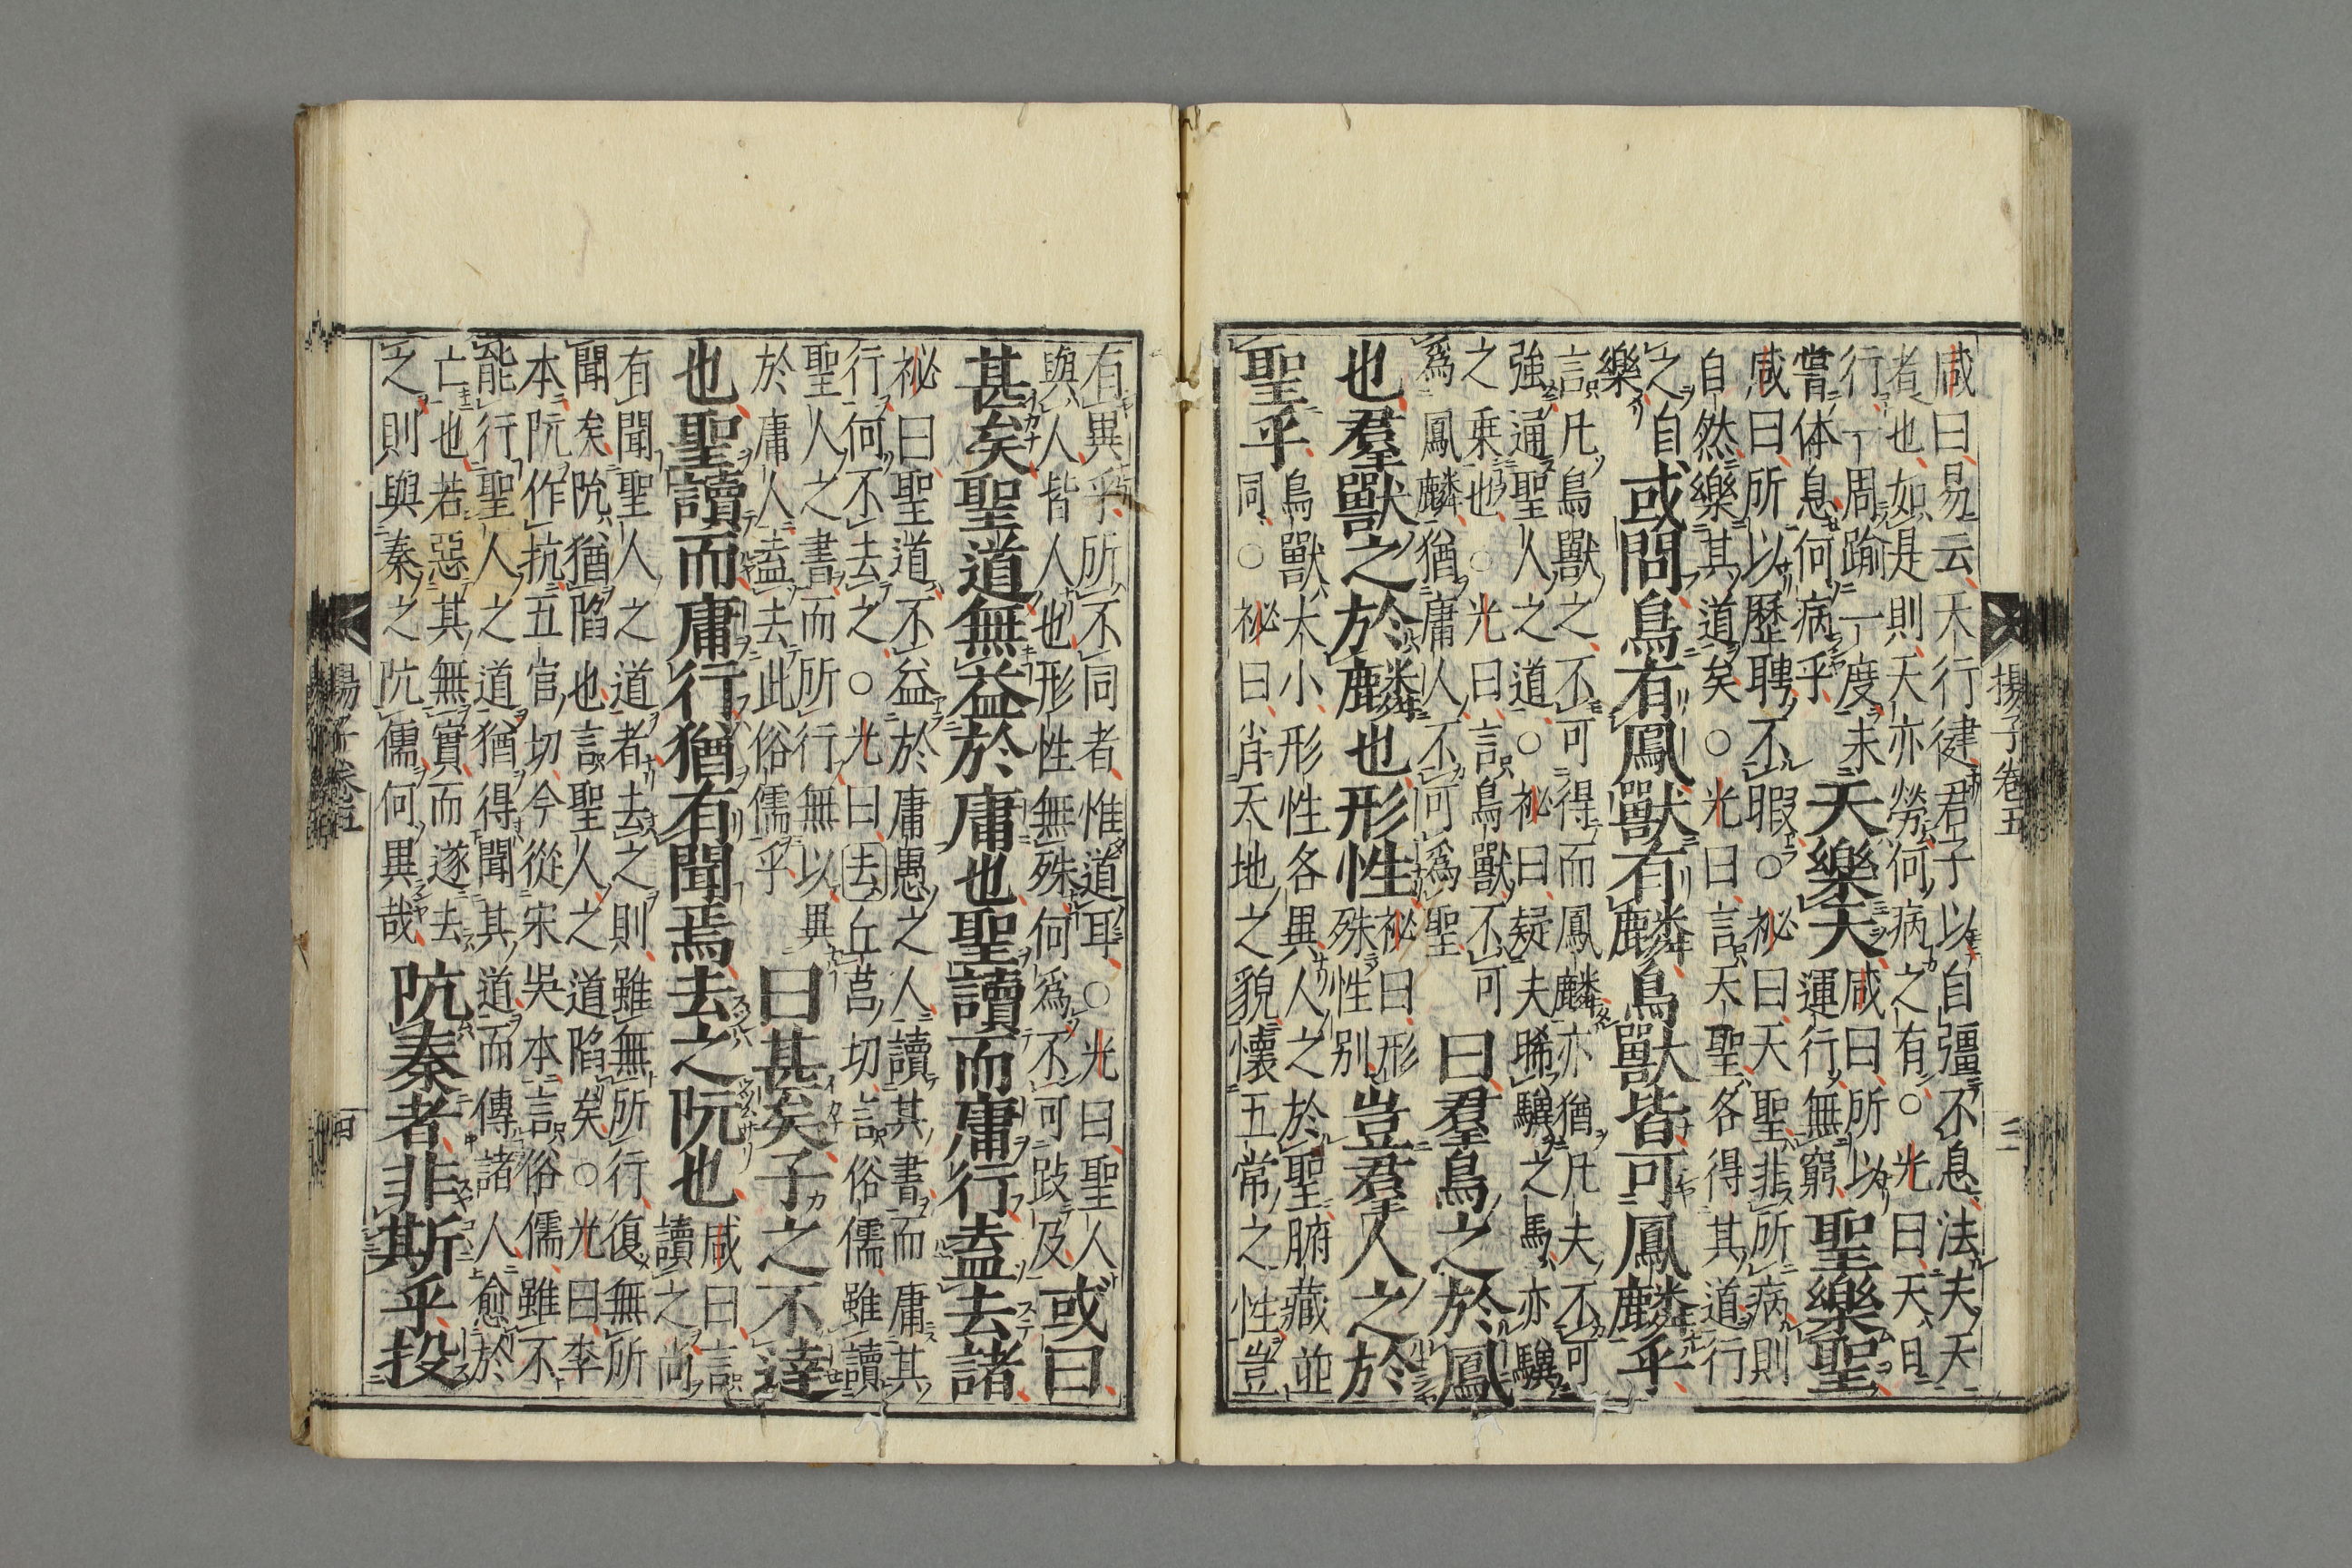 咸曰易云天行健君子以自彊不息法夫天
者也如是則天亦勞何病之有○光曰天日
行一周踰一度未
嘗体息何病乎
天樂天
咸曰所以
運行無窮
聖樂聖
咸曰所以歷聘不暇○祕曰天聖非所病則
自然樂其道矣○光曰言天聖各得其道行
之自
樂
或問鳥有鳳獸有麟鳥獸皆可鳳麟乎
言凡鳥獸之不可得而鳳麟亦猶凡夫不可
強通聖人之道○祕曰疑夫晞驥之馬亦驥
之乗也○光曰言鳥獸不可
爲鳳麟猶庸人不可爲聖
曰羣鳥之於鳳
也羣獸之於麟也形性
祕曰形
殊性別
豈羣人之於
聖乎
鳥獸大小形性各異人之於聖腑藏並
同○祕曰肖天地之貌懷五常之性豈
揚子卷五
三
有異乎所不同者惟道耳○光曰聖人
與人皆人也形性無殊何爲不可跂及
或曰
甚矣聖道無益於庸也聖讀而庸行盍去諸
祕曰聖道不益於庸愚之人讀其書而庸其
行何不去之○光曰去丘莒切言俗儒雖讀
聖人之書而所行無以異
於庸人盍去此俗儒乎
曰甚矣子之不達
也聖讀而庸行猶有聞焉去之阬也
咸曰言
讀之尚
有聞聖人之道者去之則雖無所行復無所
聞矣阬猶陷也言聖人之道陷矣○光曰李
本阬作抗五官切今從宋吳本言俗儒雖不
能行聖人之道猶得聞其道而傳諸人愈於
亡也若惡其無實而遂去
之則與秦之阬儒何異哉
阬秦者非斯乎投
揚子卷五
四